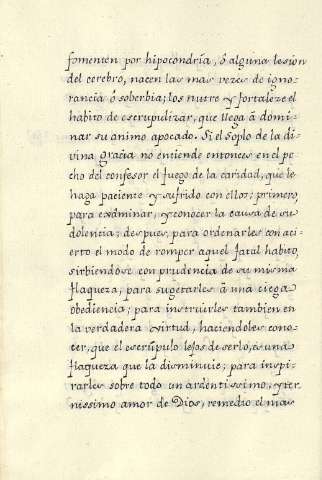 fomenten por hipocondría, ó alguna lesion
del cerebro, nacen las mas vezes de igno-
rancia ó soberbia; los nutre y fortaleze el
habito de escrupulizar, que llega á domi-
nar su animo apocado. Si el soplo de la di-
vina gracia no entiende entonces en el pe-
cho del confesor el fuego de la caridad, que le
haga paciente y sufrido con ellos; primero,
para exâminar, y conocer la causa de su
dolencia; despues, para ordenarles con aci-
erto el modo de romper aquel fatal habito,
sirbiendose con prudencia de su misma
flaqueza, para sugetarles á una ciega
obediencia; para instruirles tambien en
la verdadera virtud, haciendoles cono-
cer, que el escrúpulo lejos de serlo, es una
flaqueza que la disminuie; para inspi-
rarles sobre todo un ardentissimo, y ter-
nissimo amor de Dios, remedio el mas